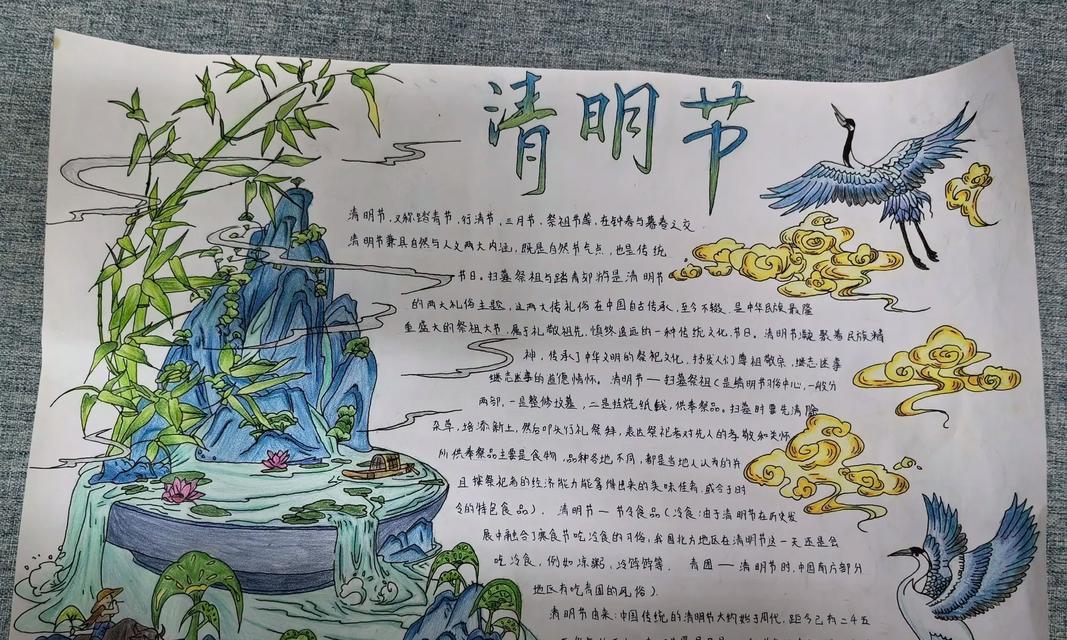 清明节
清明节，又称踏青节、行清节、三月节、祭祖节等，在仲春与暮春之交
清明节兼具自然与人文两大内涵，既是自然节气点，也是传统
节日。扫墓祭祖与踏青郊游是清明节
的两大礼俗主题，这两大传礼俗在中国自古传承，至今不辍，是中华民族最隆
重盛大的祭祖大节，属于礼敬祖先，慎终追远的一种传统文化节日。清明节凝聚着民族精
神，传承了中华文明的祭祀文化，抒发人们尊祖敬宗，继志述事
继志述事的道德情怀。清明节一扫墓祭祖（是清明节习俗中心，一般分
两部，一是整修坟墓，二是挂烧纸钱，供奉祭品。扫墓时要先清除
杂草，培添新土，然后叩头行礼祭拜，表达祭祀者对先人的孝敬和关怀
所供奉祭品主要是食物，品种各地不同，都是当地人认为的并
且按祭祀者的经济能力能拿得出来的美味佳肴，或合于时
令的特色食品）． 清明节一节令食品（冷食：由于清明节在历史发
展中融合了寒食节吃冷食的习俗，我国北方地区在清明节这一天还是会
吃冷食，例如凉粥，冷饽饽等， 青团一清明节时，中国南方部分
地区有吃青团的风俗）．
清明节由来：中国传统的清明节大约始于周代，距今已有二千五